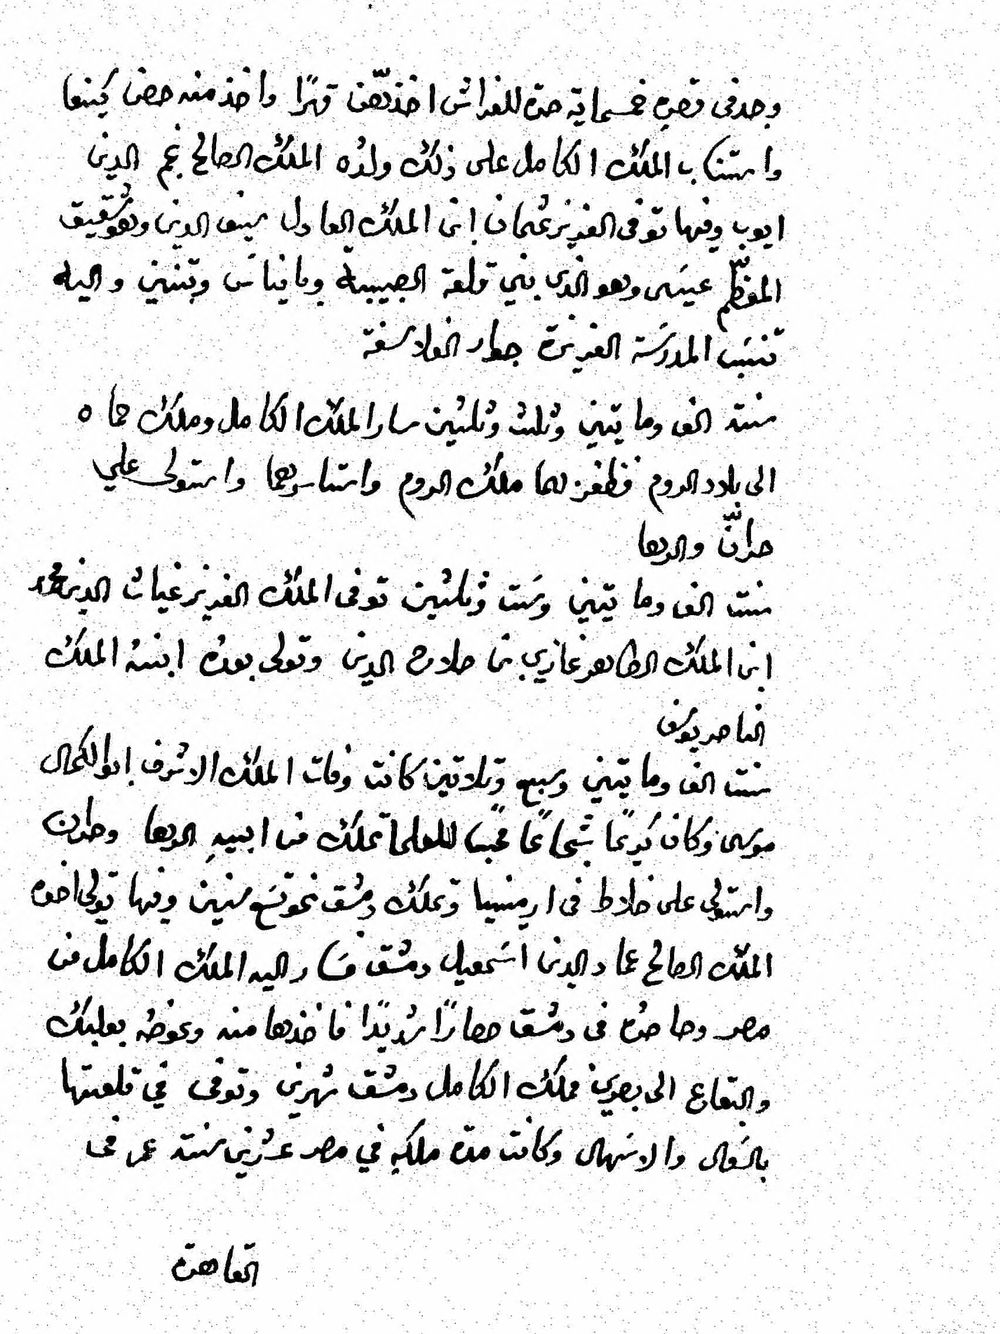 وجد في قصره خمسماية حرة للفراش اخذهن قهرًا واخذ منه حصن كيفا
واستناب الملك الكامل على ذلك ولده الملك الصالح نجم الدين
ايوب وفيها توفى العزيز عثمان ابن الملك العادل سيف الدين وهو شقيق
المعظّم عيسى وهو الذي بني قلعة الصبيبة وبانياس وتبنين واليه
تنسب المدرسة العزيزة جوار الفلاسفة
سنة الف ومايتين وثلث وثلثين سار الملك الكامل وملك حماه
الى بلاد الروم فظفر لهما ملك الروم واستاسرهما واستولى علي
حرانّ والرها
سنت الف ومايتين وست وثلثين توفى الملك العزيز غياث الدين محمد
ابن الملك الظاهر غازي بن صلاح الدين وتولى بعده ابنه الملك
الناصر يوسف
سنت الف ومايتين وسبع وثلاتين كانت وفات الملك الاشرف ابو الكمال
موسى وكان كريمًا شجاعًا محبًا للعلما تملك من ابيه الرها وحران
واستولى على خلاط في ارمنيا وتملك دمشق نحو تسع سنين وفيها تولى اخوه
الملك الصالح عماد الدين اسمعيل دمشق فسار اليه الملك الكامل من
مصر وحاصره في دمشق حصارًا شديدًا فاخذها منه وعوضه بعلبك
والبقاع الى بصرى فملك الكامل دمشق شهرين وتوفى في قلعتها
بالسعال والاسهال وكانت مدة ملكه في مصر عشرين سنة عمر في
القاهرة